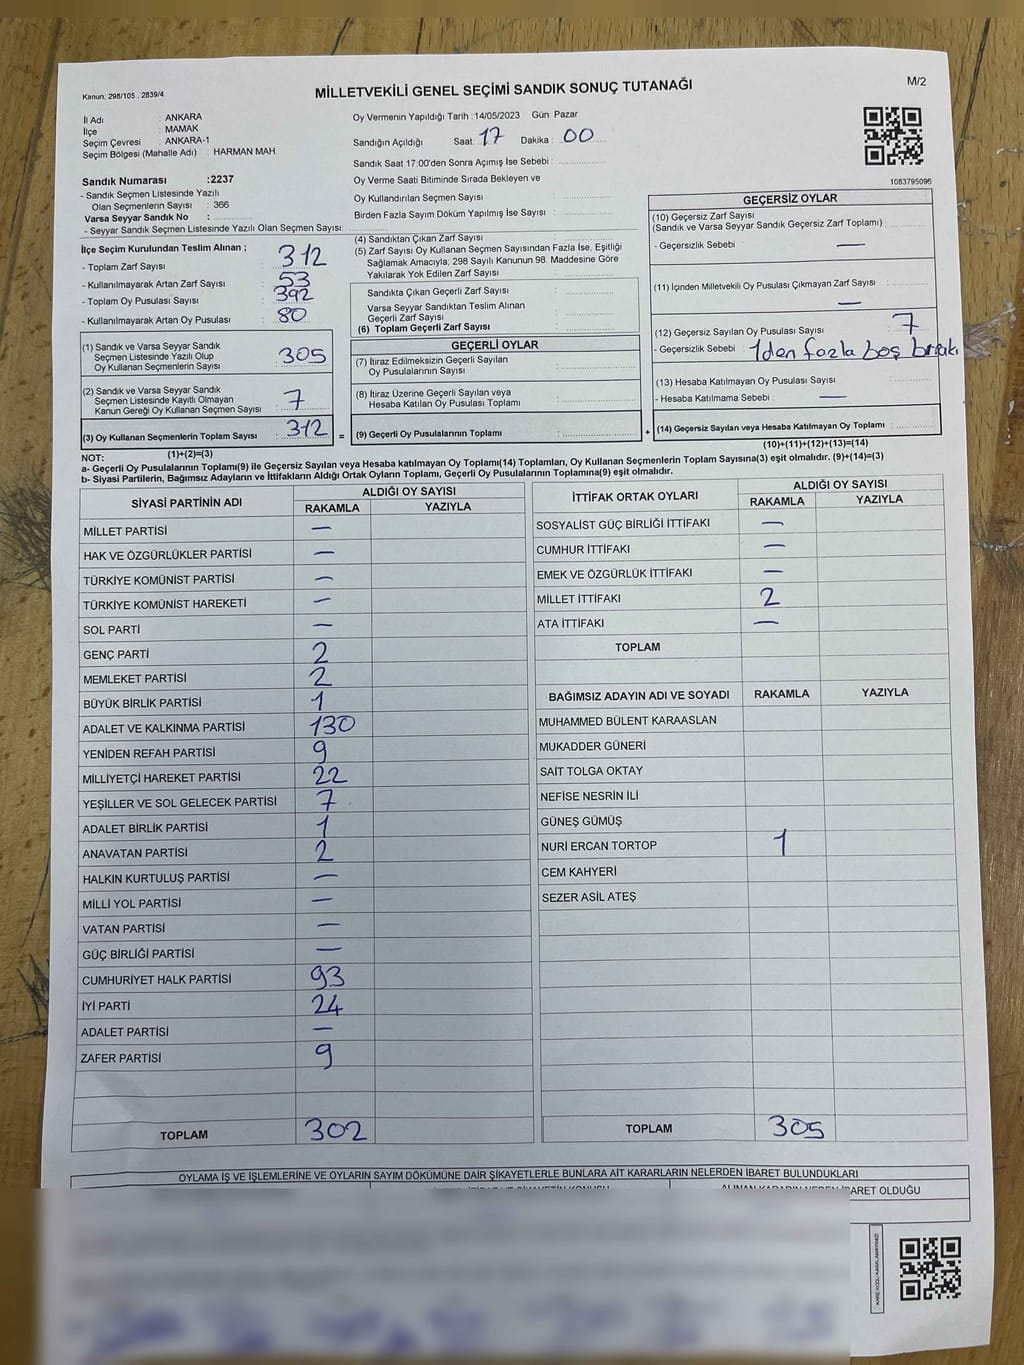 Kanun. 298/105 . 2839/4
MİLLETVEKİLİ GENEL SEÇİMİ SANDIK SONUÇ TUTANAĞI
M/2
İl Adı : ANKARA
İlçe : MAMAK
Seçim Çevresi : ANKARA-1
Seçim Bölgesi (Mahalle Adı) : HARMAN MAH.
Oy Vermenin Yapıldığı Tarih :14/05/2023 Gün: Pazar
Sandığın Açıldığı Saat: 17 Dakika: 00
Sandık Saat 17:00'den Sonra Açımış İse Sebebi :
Oy Verme Saati Bitiminde Sırada Bekleyen ve
Oy Kullandırılan Seçmen Sayısı :
Birden Fazla Sayım Döküm Yapılmış İse Sayısı :
1083795096
Sandık Numarası :2237
- Sandık Seçmen Listesinde Yazılı
Olan Seçmenlerin Sayısı : 366
Varsa Seyyar Sandık No :
- Seyyar Sandık Seçmen Listesinde Yazılı Olan Seçmen Sayısı:
İlçe Seçim Kurulundan Teslim Alınan ;
- Toplam Zarf Sayısı : 312
- Kullanılmayarak Artan Zarf Sayısı : 53
- Toplam Oy Pusulası Sayısı : 392
- Kullanılmayarak Artan Oy Pusulası : 80
(1) Sandık ve Varsa Seyyar Sandık
Seçmen Listesinde Yazılı Olup
Oy Kullanan Seçmenlerin Sayısı : 305
(2) Sandık ve Varsa Seyyar Sandık
Seçmen Listesinde Kayıtlı Olmayan
Kanun Gereği Oy Kullanan Seçmen Sayısı : 7
(3) Oy Kullanan Seçmenlerin Toplam Sayısı : 312 =
(1)+(2)=(3)
(4) Sandıktan Çıkan Zarf Sayısı :
(5) Zarf Sayısı Oy Kullanan Seçmen Sayısından Fazla İse, Eşitliği
Sağlamak Amacıyla; 298 Sayılı Kanunun 98. Maddesine Göre
Yakılarak Yok Edilen Zarf Sayısı :
Sandıkta Çıkan Geçerli Zarf Sayısı :
Varsa Seyyar Sandıktan Teslim Alınan
Geçerli Zarf Sayısı :
(6) Toplam Geçerli Zarf Sayısı :
GEÇERLİ OYLAR
(7) İtiraz Edilmeksizin Geçerli Sayılan
Oy Pusulalarının Sayısı :
(8) İtiraz Üzerine Geçerli Sayılan veya
Hesaba Katılan Oy Pusulası Toplamı :
(9) Geçerli Oy Pusulalarının Toplamı : +
GEÇERSİZ OYLAR
(10) Geçersiz Zarf Sayısı
(Sandık ve Varsa Seyyar Sandık Geçersiz Zarf Toplamı) :
- Geçersizlik Sebebi : —
(11) İçinden Milletvekili Oy Pusulası Çıkmayan Zarf Sayısı :
—
(12) Geçersiz Sayılan Oy Pusulası Sayısı : 7
- Geçersizlik Sebebi : 1den fazla boş
(13) Hesaba Katılmayan Oy Pusulası Sayısı :
- Hesaba Katılmama Sebebi : —
(14) Geçersiz Sayılan veya Hesaba Katılmayan Oy Toplamı :
(10)+(11)+(12)+(13)=(14)
NOT:
a- Geçerli Oy Pusulalarının Toplamı(9) ile Geçersiz Sayılan veya Hesaba katılmayan Oy Toplamı(14) Toplamları, Oy Kullanan Seçmenlerin Toplam Sayısına(3) eşit olmalıdır. (9)+(14)=(3)
b- Siyasi Partilerin, Bağımsız Adayların ve İttifakların Aldığı Ortak Oyların Toplamı, Geçerli Oy Pusulalarının Toplamına(9) eşit olmalıdır.
SİYASİ PARTİNİN ADI ALDIĞI OY SAYISI
RAKAMLA YAZIYLA
MİLLET PARTİSİ —
HAK VE ÖZGÜRLÜKLER PARTİSİ —
TÜRKİYE KOMÜNİST PARTİSİ —
TÜRKİYE KOMÜNİST HAREKETİ —
SOL PARTİ —
GENÇ PARTİ 2
MEMLEKET PARTİSİ 2
BÜYÜK BİRLİK PARTİSİ 1
ADALET VE KALKINMA PARTİSİ 130
YENİDEN REFAH PARTİSİ 9
MİLLİYETÇİ HAREKET PARTİSİ 22
YEŞİLLER VE SOL GELECEK PARTİSİ 7
ADALET BİRLİK PARTİSİ 1
ANAVATAN PARTİSİ 2
HALKIN KURTULUŞ PARTİSİ —
MİLLİ YOL PARTİSİ —
VATAN PARTİSİ —
GÜÇ BİRLİĞİ PARTİSİ —
CUMHURİYET HALK PARTİSİ 93
İYİ PARTİ 24
ADALET PARTİSİ —
ZAFER PARTİSİ 9
TOPLAM 302
İTTİFAK ORTAK OYLARI ALDIĞI OY SAYISI
RAKAMLA YAZIYLA
SOSYALİST GÜÇ BİRLİĞİ İTTİFAKI —
CUMHUR İTTİFAKI —
EMEK VE ÖZGÜRLÜK İTTİFAKI —
MİLLET İTTİFAKI 2
ATA İTTİFAKI —
TOPLAM
BAĞIMSIZ ADAYIN ADI VE SOYADI RAKAMLA YAZIYLA
MUHAMMED BÜLENT KARAASLAN
MUKADDER GÜNERİ
SAİT TOLGA OKTAY
NEFİSE NESRİN İLİ
GÜNEŞ GÜMÜŞ
NURİ ERCAN TORTOP 1
CEM KAHYERİ
SEZER ASİL ATEŞ
TOPLAM 305
OYLAMA İŞ VE İŞLEMLERİNE VE OYLARIN SAYIM DÖKÜMÜNE DAİR ŞİKAYETLERLE BUNLARA AİT KARARLARIN NELERDEN İBARET BULUNDUKLARI
ALINAN KARARIN NEDEN İBARET OLDUĞU